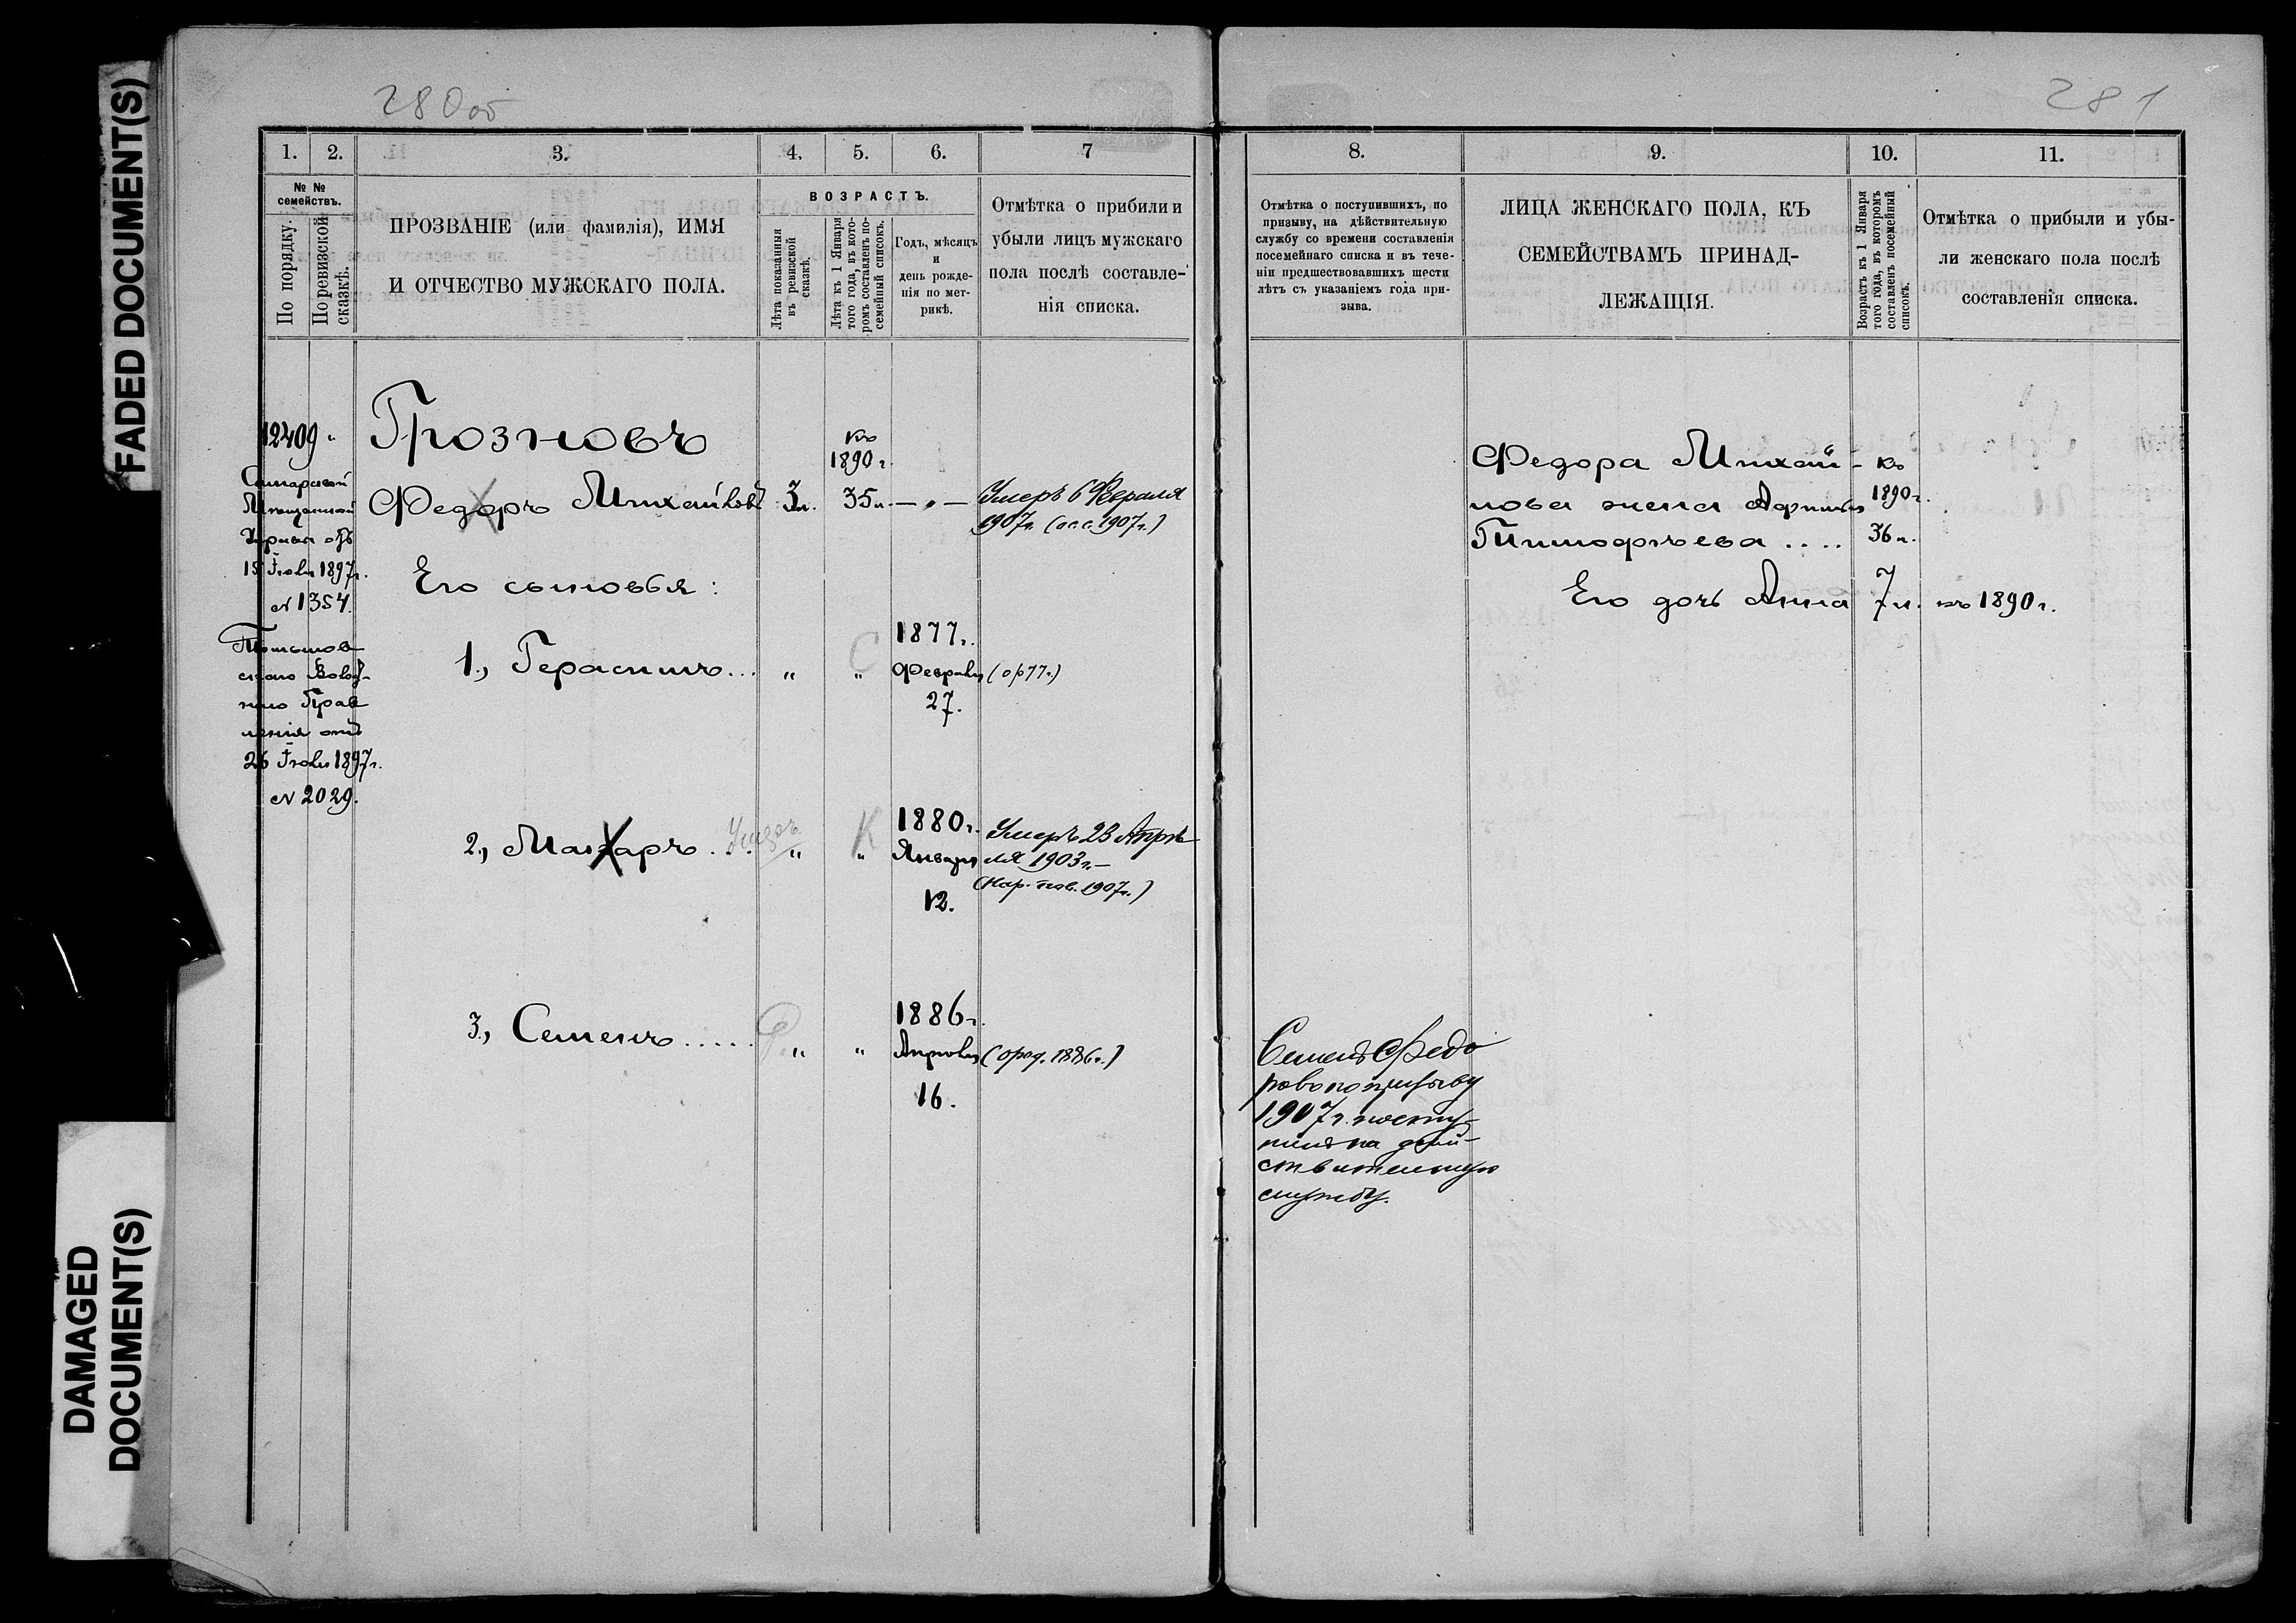 FADED DOCUMENT(S)
DAMAGED
DOCUMENT(S)
280об
1.
2.
3.
4.
5.
6.
7
№ №
семействъ.
По порядку.
По ревизской
сказкѣ.
ПРОЗВАНІЕ (или фамилія), ИМЯ
И ОТЧЕСТВО МУЖСКАГО ПОЛА.
ВОЗРАСТЪ.
Лѣта показанныя
въ ревизской
сказкѣ.
Лѣта къ 1 Января
того года, въ кото-
ромъ составленъ по-
семейный списокъ.
Годъ, мѣсяцъ
и
день рожде-
нія по мет-
рикѣ.
Отмѣтка о прибыли и
убыли лицъ мужскаго
пола послѣ составле-
нія списка.
12409 "
Самарской
Мѣщанской
Управы отъ
15 Іюля 1897г.
№ 1354.
скаго Волост-
наго Прав
ленія отъ
26 Іюля 1897г.
№ 2029.
Грозновъ
Федоръ Михайловъ
3л.
къ
1890г.
35л.
— " —
Умеръ 6 Февраля
1907г. (осс. 1907г.)
Его сыновья:
1., Герасимъ...
"
С
"
1877г.
Февраля
27.
(ор77г.)
2., Макаръ...
Умеръ
"
К
"
1880г.
Января
12.
Умеръ 23 Апрѣ
ля 1903г.—
(Нар. пов. 1907г.)
3., Семенъ.....
"
"
1886г.
Апрѣля
16.
(орд. 1886г.)
281
8.
9.
10.
11.
Отмѣтка о поступившихъ, по
призыву, на дѣйствительную
службу со времени составленія
посемейнаго списка и въ тече-
ніи предшествовавшихъ шести
лѣтъ съ указаніемъ года при-
зыва.
ЛИЦА ЖЕНСКАГО ПОЛА, КЪ
СЕМЕЙСТВАМЪ ПРИНАД-
ЛЕЖАЩІЯ.
Возрастъ къ 1 Января
того года, въ которомъ
составленъ посемейный
списокъ.
Отмѣтка о прибыли и убы-
ли женскаго пола послѣ
составленія списка.
Федора Михай-
лова жена Афимья
Тимофѣева ....
къ
1890г.
36л.
Его дочь Анна
7л.
къ 1890г.
Семенъ Федо
ровъ по призыву
1907г. посту-
пилъ на дѣй-
ствительную
службу.